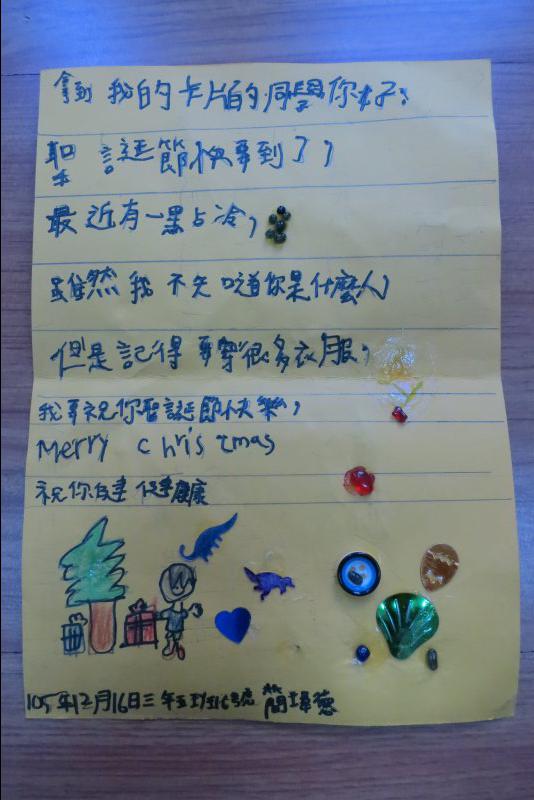 拿到我的卡片的同學你好:
聖誕節快要到了,
最近有一點占冷,
雖然我不知道你是什麼人,
但是記得要穿很多衣服,
我要祝你聖誕節快樂,
Merry Christmas
祝你健健康康
105年12月16日三年五班 號 簡瑋德